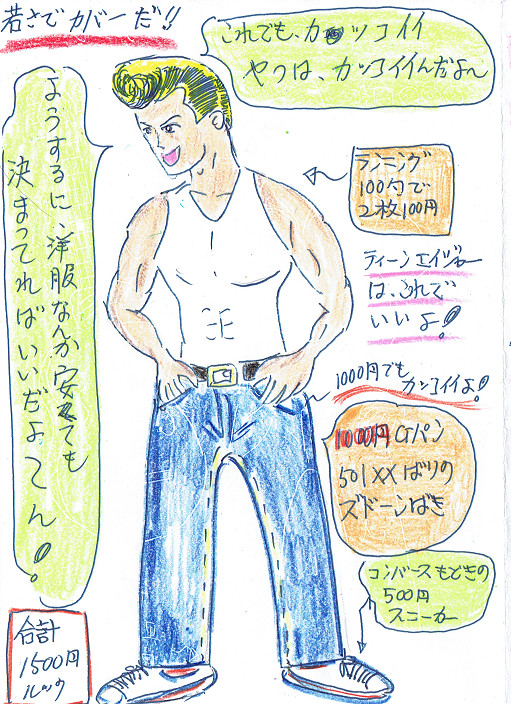 若さでカバーだ!!
これでも、カッコイイ
ヤツは、カッコイイんだよ〜
ようするに、洋服なんか安くても
決まってればいいだよてん!
ランニング
100匀で
2枚100円
ティーンエイジャー
は、これで
いいよ!
1000円でも
カッコイイよ!
1000円Gパン
501XXばりの
ズドーンばき
コンバースもどきの
500円
スニーカー
合計
1500円
ルック